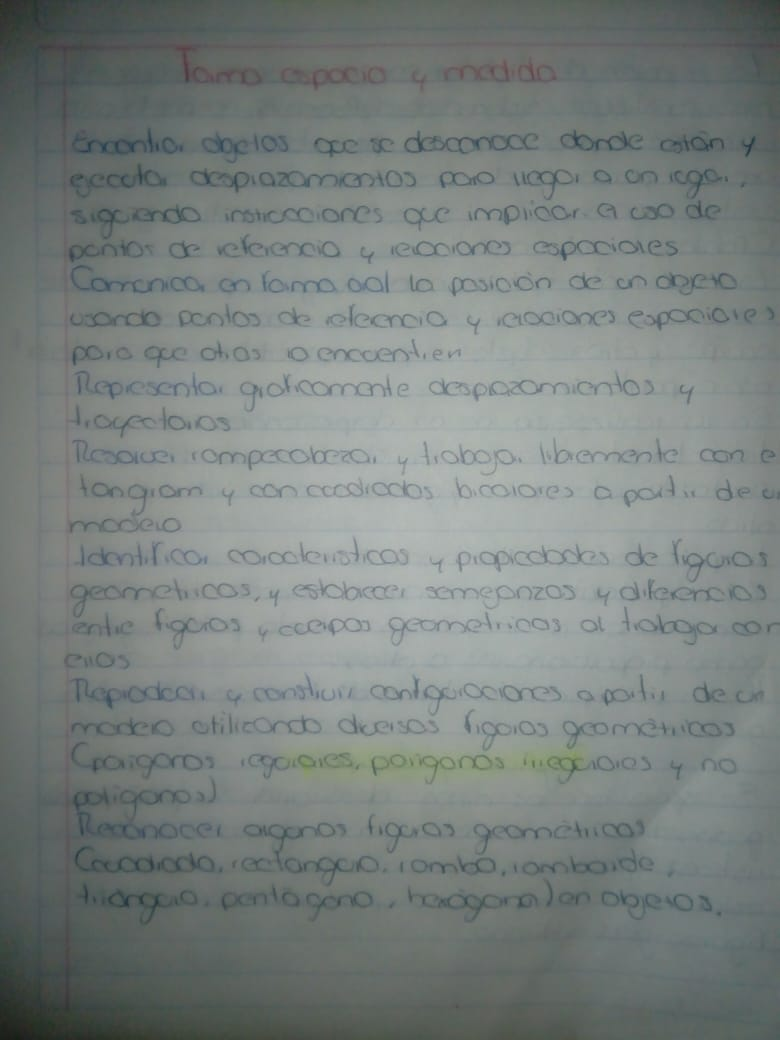 Forma espacio y medida
Encontrar objetos que se desconoce donde están y
ejecutar desplazamientos para llegar a un lugar,
siguiendo instrucciones que implicar el uso de
puntos de referencia y relaciones espaciales
Comunicar en forma oral la posición de un objeto
usando puntos de referencia y relaciones espaciales
para que otros lo encuentren
Representar graficamente desplazamientos y
trayectorias
Resolver rompecabezar y trabajar libremente con e
tangram y con cuadrados bicolores a partir de un
modelo
Identificar caracteristicas y propiedades de figuras
geometricas, y establecer semejanzas y diferencias
entre figuras y cuerpos geometricos al trabajar con
ellos
Reproducir y construir configuraciones a partir de un
modelo utilizando diversos figuras geométricas
(poligonos regulares, poligonos irregulares y no
poligonos)
Reconocer algunas figuras geométricas
(cuadrado, rectangulo, rombo, romboide,
triángulo, pentágono, hexágono) en objetos.